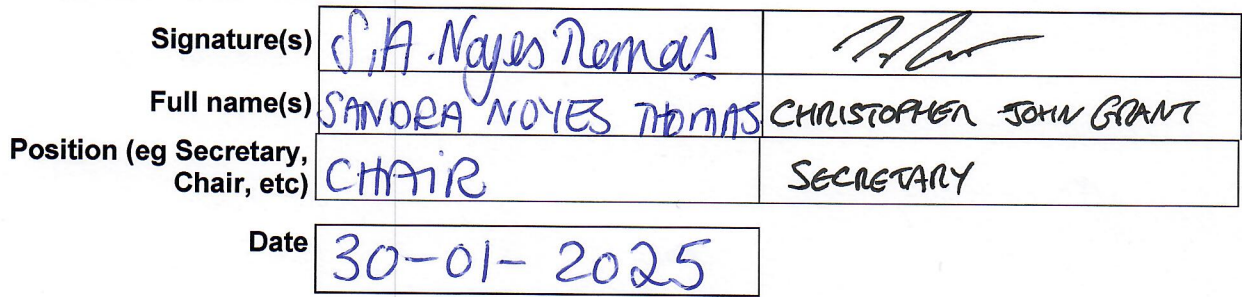 Signature(s) S.A. Noyes Thomas
Full name(s) SANDRA NOYES THOMAS CHRISTOPHER JOHN GRANT
Position (eg Secretary, Chair, etc) CHAIR SECRETARY
Date 30-01-2025